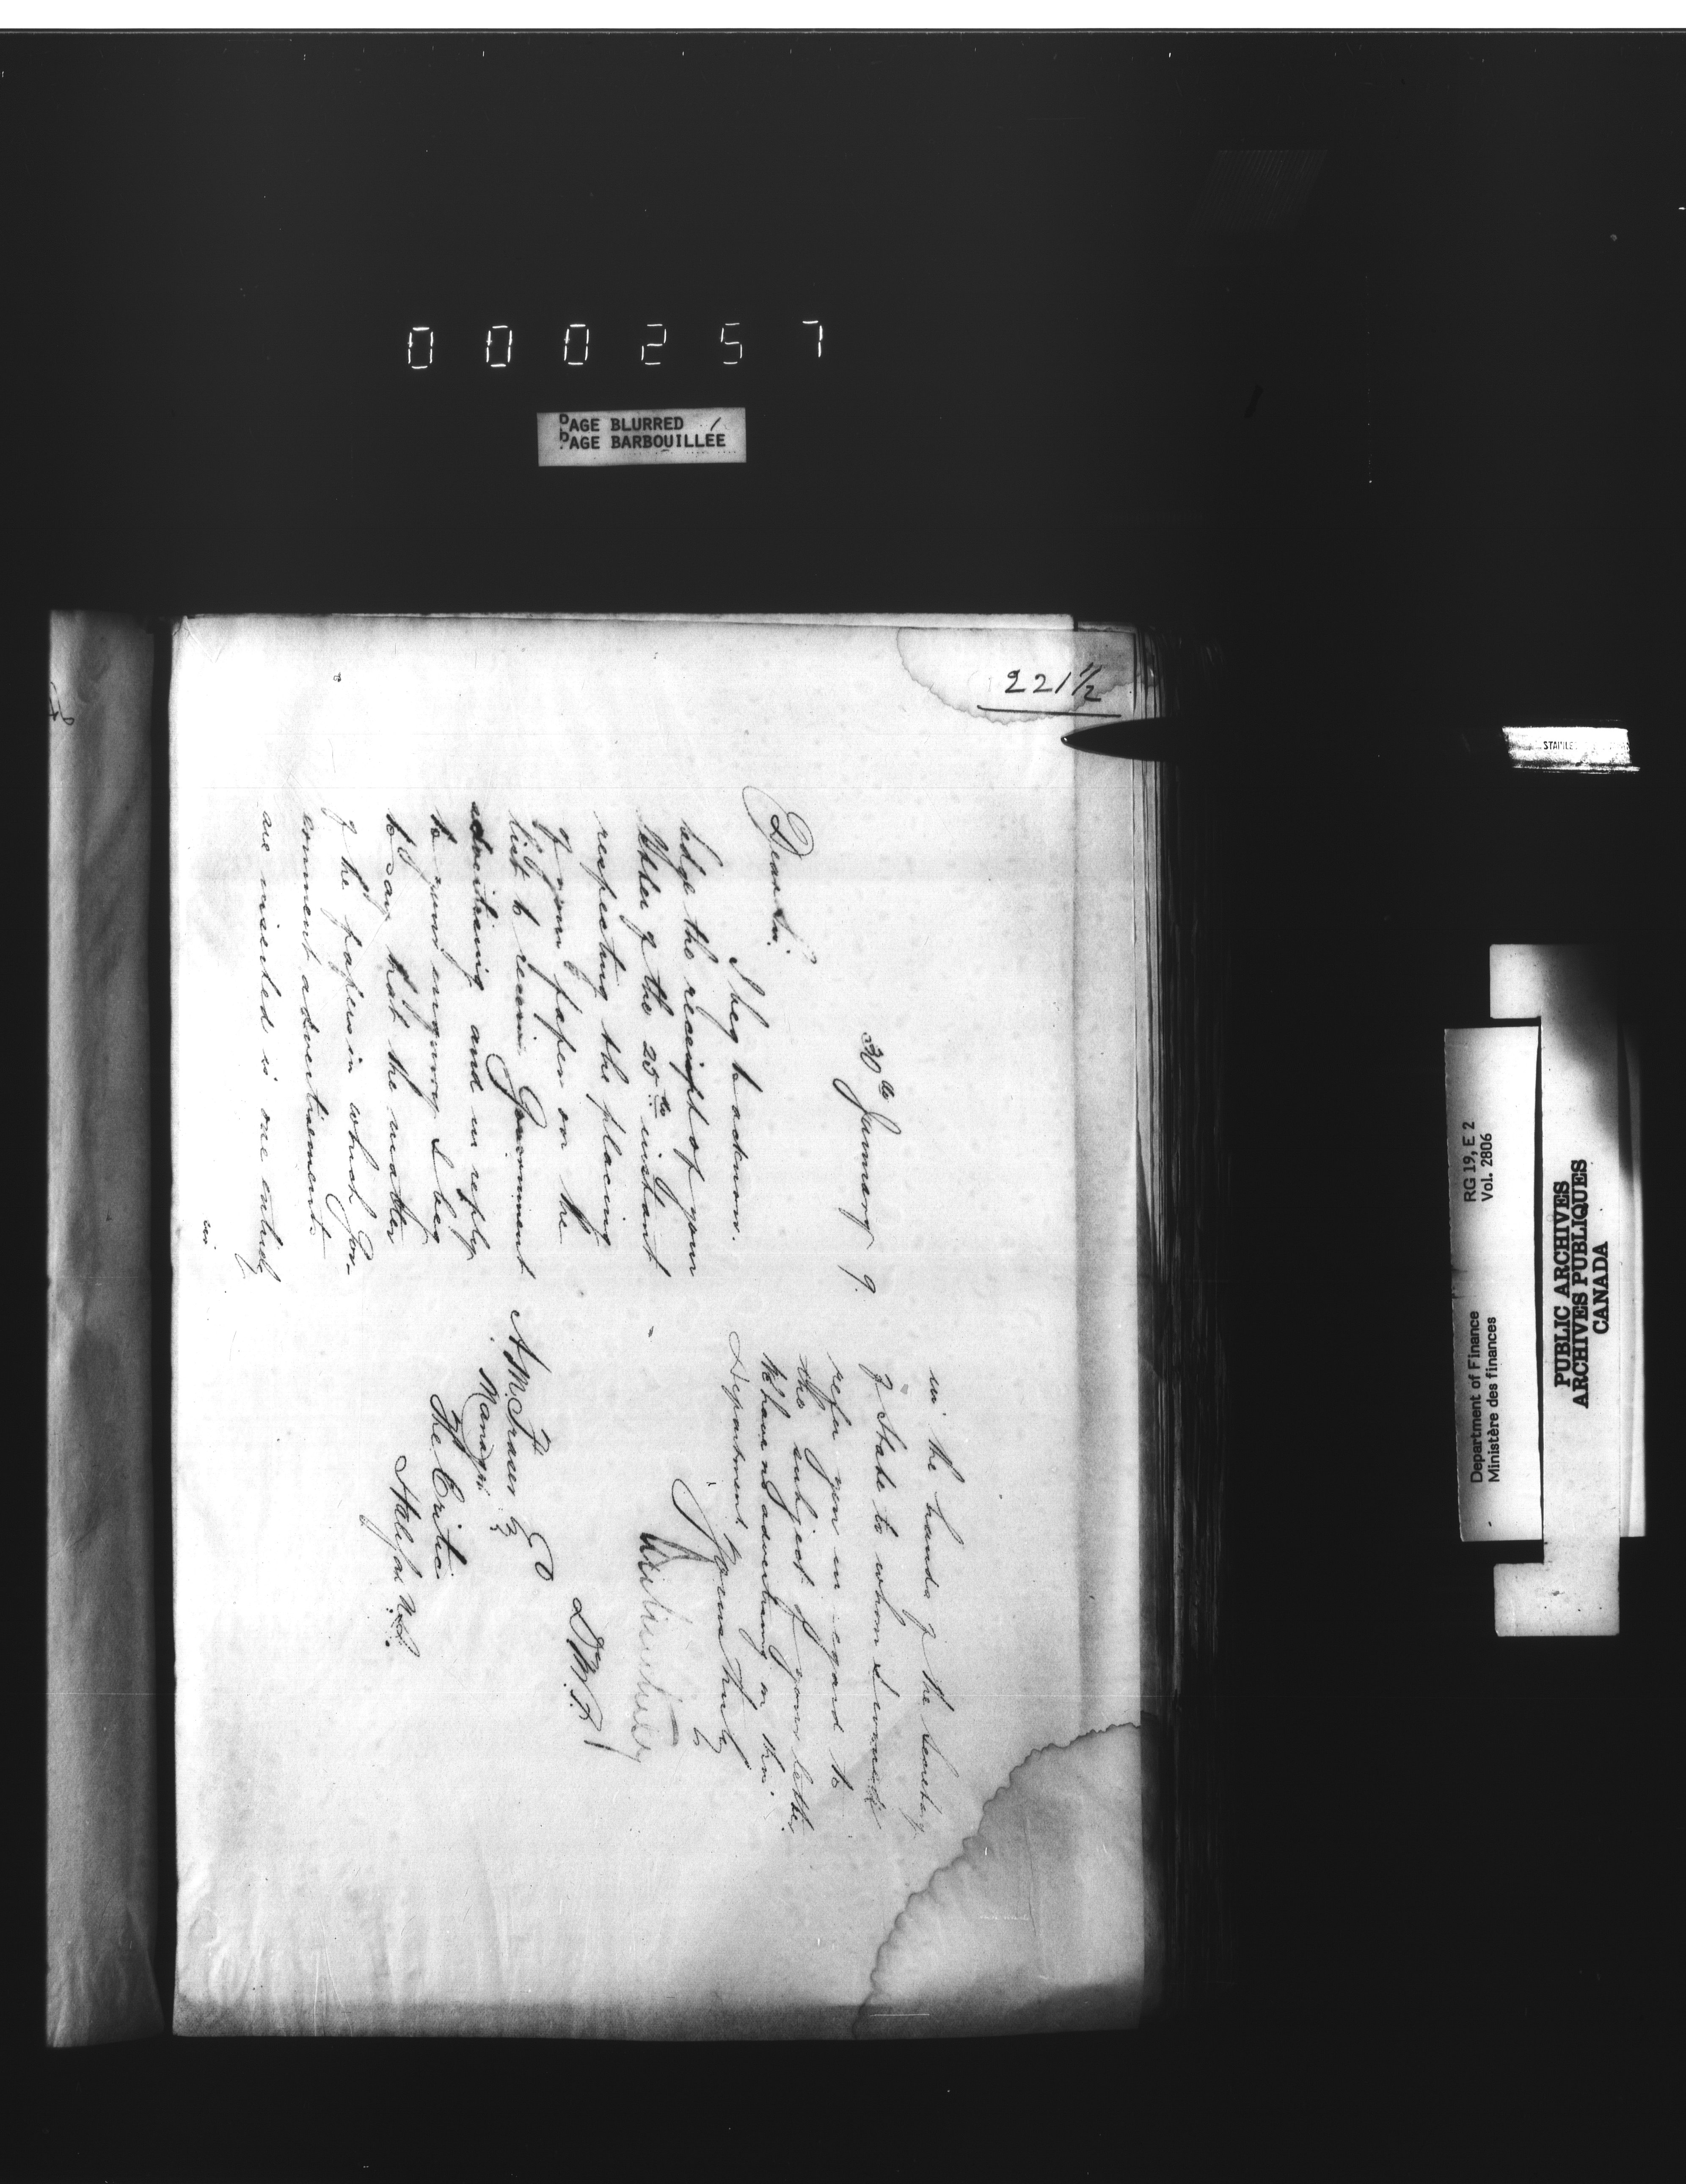 000257
PAGE BLURRED
PAGE BARBOUILLÉE
221½
30th January 9.
Dear Sir.
I beg to acknow.
ledge the receipt of your
letter of the 20th instant
respecting the placing
of your paper on the
list to receive Government
advertising and in reply
to your enquiry I beg
to say that the matter
of the papers in which Gov-
ernment advertisements
are inserted is one entirely
in
in the hands of the Secretary
of State to whom I would
refer you in regard to
the subject of your letter
We have no advertising in this
Department
Yours truly
D.M.F.
A. M. Fraser Eq
Manager
The Critic
Halifax N.S.
STAPLE
RG 19, E 2
Vol. 2806
Department of Finance
Ministère des finances
PUBLIC ARCHIVES
ARCHIVES PUBLIQUES
CANADA